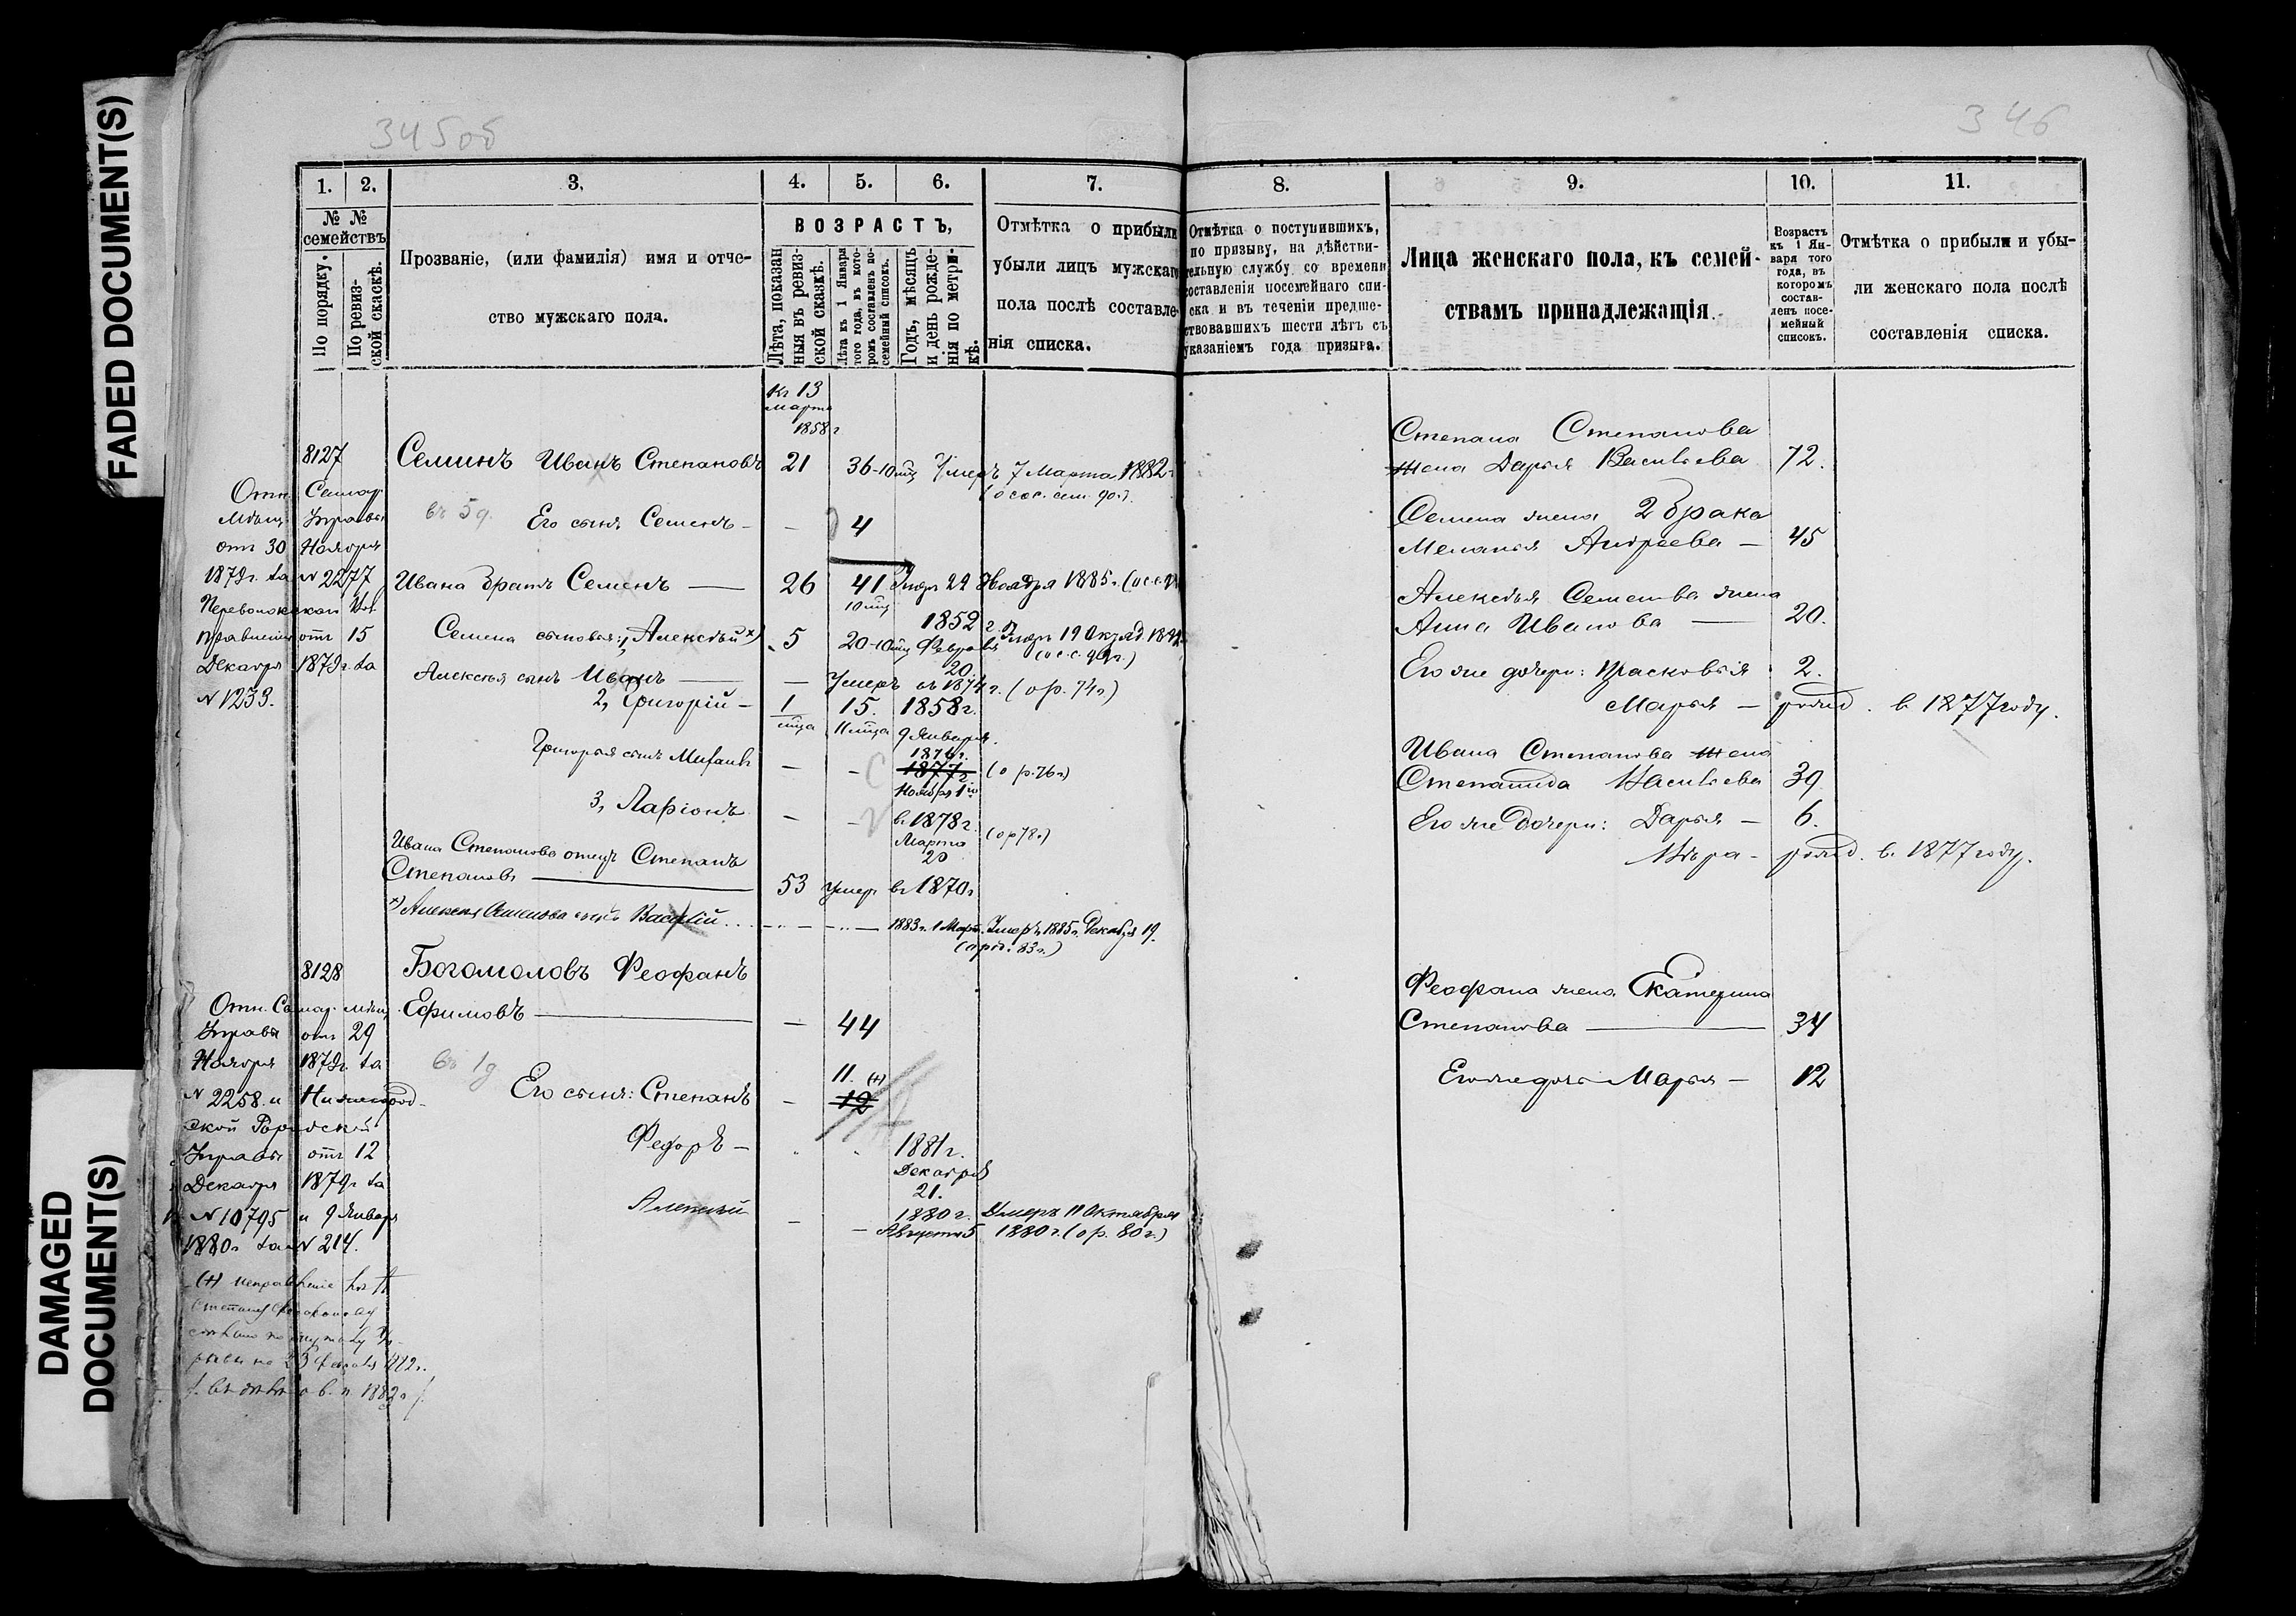 FADED DOCUMENT(S)
DAMAGED
DOCUMENT(S)
345об
346
1. 2. 3. 4. 5. 6. 7. 8. 9. 10. 11.
№ №
семействъ
По порядку.
По ревиз-
ской скаскѣ.
Прозваніе, (или фамилія) имя и отче-
ство мужскаго пола.
ВОЗРАСТЪ,
Лѣта, показан
ныя въ ревиз-
ской сказкѣ.
Лѣта къ 1 Января
того года, въ кото-
ромъ составленъ по-
семейный списокъ.
Годъ, мѣсяцъ
и день рожде-
нія по метри-
кѣ.
Отмѣтка о прибыли
убыли лицъ мужскаго
пола послѣ составле-
нія списка.
Отмѣтка о поступившихъ,
по призыву, на дѣйстви-
тельную службу со времени
составленія посемейнаго спи-
ска и въ теченіи предше-
ствовавшихъ шести лѣтъ съ
указаніемъ года призыва.
Лица женскаго пола, къ семей-
ствамъ принадлежащія.
Возрастъ
къ 1 Ян-
варя того
года, въ
которомъ
состав-
ленъ посе-
мейный
списокъ.
Отмѣтка о прибыли и убы-
ли женскаго пола послѣ
составленія списка.
Къ 13
Марта
1858 г
8127 Семинъ Иванъ Степановъ 21 36-10 мц Умеръ 7 Марта 1882 г
въ 5 д. Его сынъ Семенъ - - 4
Ивана братъ Семенъ — 26 41 Умеръ 22 Ноября 1885 г.
10 мц
Семена сыновья: 1, Алексѣй х) 5 20-10 мц 1852 г. Февраля 20 Умеръ 19
Алексѣя сынъ Иванъ — — Умеръ въ 1874 г. (о р. 74 г)
2, Григорій - 1 мца 15. 11 мца 1858 г. 9 Января.
Григорья сынъ Михаилъ — - 1876 г. 1877 г. Ноября 1 го (о р. 76 г)
3, Ларіонъ — - въ 1878 г. Марта 20 (о р 78 г)
Ивана Степанова отецъ Степанъ
Степановъ — 53 умер въ 1870 г
х) Алексѣя Семенова сынъ Василій... 1883 г. 1 Март. Умеръ 1885 г. Декабря 19.
(о род. 83 г.)
Отн. Самар.
Мѣщ. Управы
отъ 30 Ноября
1879 г. за № 2277
Вол.
Правленія отъ 15
Декабря 1879 г. за
№ 1233.
8128 Богомоловъ Феофанъ
Ефимовъ — — 44
въ 1 д Его сынъ: Степанъ - 11. (+) 12
Федоръ — 1881 г.
Декабря
21.
Алексѣй - 1880 г. Умеръ 11 Октября
— Августа 5 1880 г. (о р. 80 г.)
Отн. Самар. мѣщ.
Управы отъ 29
Ноября 1879 г. за
№ 2258. и Нижегород-
ской Городской
Управы отъ 12
Декабря 1879 г за
№ 10795 и 9 Января
1880 г за № 214.
(+) исправленіе лѣтъ
Степану
Степана Степанова
жена Дарья Васильева 72.
Семена жена 2 брака
Меланья Андреева — 45
Алексѣя Семенова жена
Анна Иванова — 20.
Его же дочери: Прасковья 2.
Марья — рожд. въ 1877 году.
Ивана Степанова жена
Степанида Васильева 39
Его же дочери: Дарья — 6.
Вѣра - рожд. въ 1877 году.
Феофана жена Екатерина
Степанова — 34
Его же дочь Марья — 12